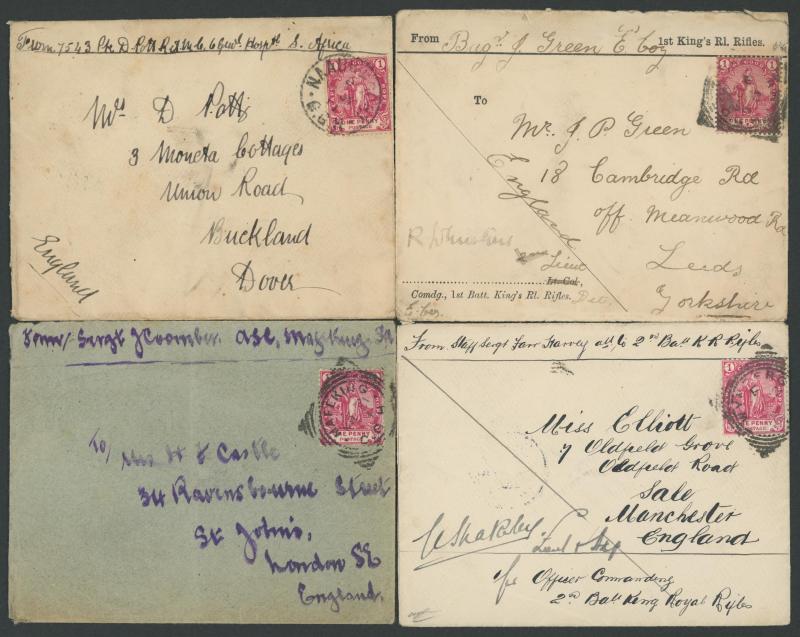 From 7543 Pte D Potts R.A.M.C. 6 Genl. Hosptl S. Africa
NAAU
Mrs D Potts
3 Moneta Cottages
Union Road
Buckland
Dover
England
ONE PENNY
POSTAGE
From Bugr J. Green E Coy 1st King's Rl. Rifles.
To
Mr. J. P. Green
18 Cambridge Rd
off Meanwood Rd
Leeds
Yorkshire
England
Lieut
Lt.-Col.,
Comdg., 1st Batt. King's Rl. Rifles.
ONE PENNY
POSTAGE
From Sergt J Coomber. ASC, Mafeking SA
MAFEKING
To/ Mrs H J Castle
34 Ravensbourne Street
St John's,
London SE
England.
ONE PENNY
POSTAGE
From Staff Sergt Harvey att to 2nd Batt K R Rifles
Miss Elliott
7 Oldfield Grove
Oldfield Road
Sale
Manchester
England
for Officer Commanding
2nd Batt King Royal Rifles